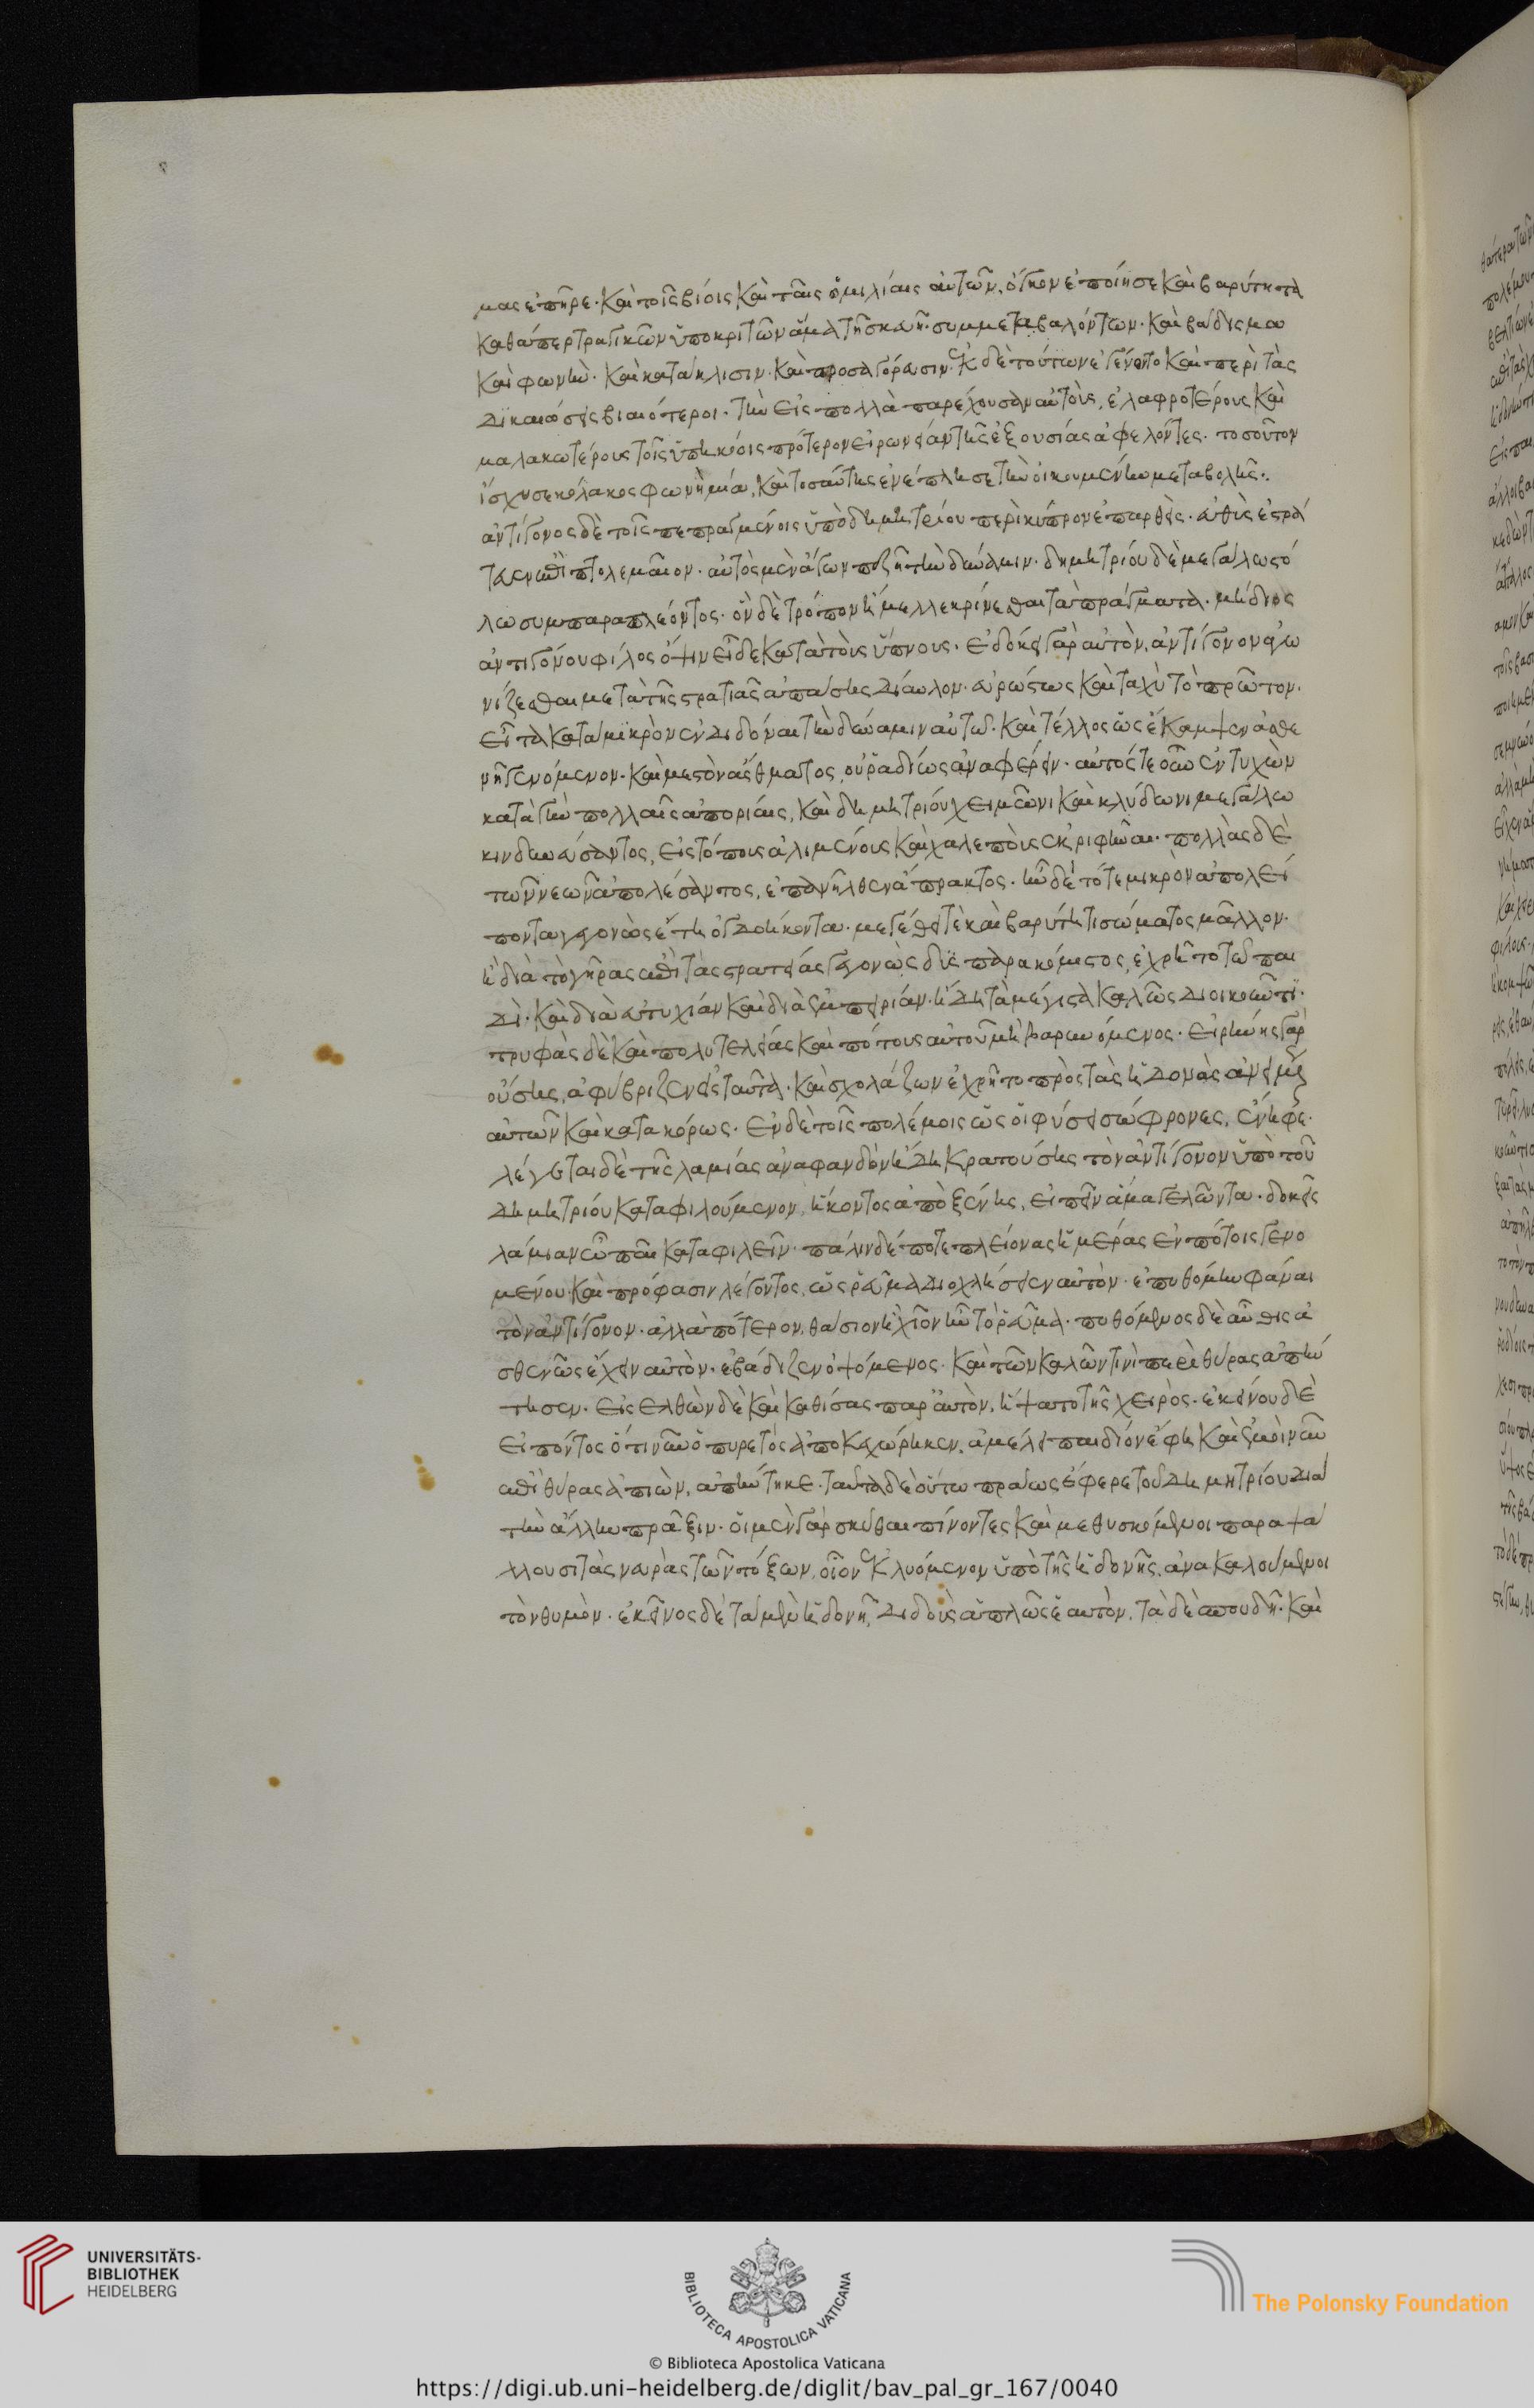 μας ἐπῆρε· καὶ τοῖς βίοις καὶ ταῖς ὁμιλίαις αὐτῶν, ὄγκον ἐποίησε καὶ βαρύτητα
καθάπερ τραγικῶν ὑποκριτῶν ἅμα τῆ σκευῆ· συμμεταβαλόντων· καὶ βάδισμα
καὶ φωνὴν· καὶ κατάκλισιν· καὶ προσαγόρευσιν· ἐκ δὲ τούτων ἐγένοντο καὶ περὶ τὰς
δικαιώσεις βιαιότεροι· τὴν εἰς πολλὰ παρέχουσαν αὐτοὺς, ἐλαφροτέρους καὶ
μαλακωτέρους τοῖς ὑπηκόοις πρότερον εἰρωνείαν τῆς ἐξουσίας ἀφελόντες· τοσοῦτον
ἴσχυσε κόλακος φωνὴ μία, καὶ τοσαύτης ἐνέπλησε τὴν οἰκουμένην μεταβολῆς·.
ἀντίγονος δὲ τοῖς πεπραγμένοις ὑπὸ δημητρίου περὶ κύπρον ἐπαρθεὶς· εὐθὺς ἐστρά
τευσεν ἐπὶ πτολεμαῖον· αὐτὸς μὲν ἄγων πεζῆ τὴν δύναμιν· δημητρίου δὲ μεγάλω στό
λω συμπαραπλέοντος· ὃν δὲ τρόπον ἤμελλε κρίνεσθαι τὰ πράγματα· μήδιος
ἀντιγόνου φίλος ὄψιν εἶδε κατὰ τοὺς ὕπνους· ἐδόκει γὰρ αὐτὸν, ἀντίγονον ἀγω
νίζεσθαι μετὰ τῆς στρατιᾶς ἁπάσης δίαυλον· εὐρώστως καὶ ταχὺ τὸ πρῶτον·
εἶτα κατὰ μικρὸν ἐνδιδόναι τὴν δύναμιν αὐτῶ· καὶ τέλλος ὡς ἔκαμψεν ἀσθε
νῆ γενόμενον· καὶ μεστὸν ἄσθματος, οὐ ῥαδίως ἀναφέρειν· αὐτός τε οὖν ἐντυχὼν
κατὰ γῆν πολλαῖς ἀπορίαις, καὶ δημητρίου χειμῶνι καὶ κλύδωνι μεγάλω
κινδυνεύσαντος, εἰς τόπους ἀλιμένους καὶ χαλεποὺς ἐκριφῆναι· πολλὰς δὲ
τῶν νεῶν ἀπολέσαντος, ἐπανῆλθεν ἄπρακτος· ἦν δὲ τότε μικρὸν ἀπολεί
ποντα γεγονὼς ἔτη ὀγδοήκοντα· μεγέθει τὲ καὶ βαρύτητι σώματος μᾶλλον·
ἢ διὰ τὸ γῆρας ἐπὶ τὰς στρατείας γεγονὼς δυσπαρακόμιστος, ἐχρῆτο τῶ παι
δί· καὶ δι' εὐτυχίαν καὶ δι' ἐμπειρίαν· ἤδη τὰ μέγιστα καλῶς διοικοῦντι·
τρυφὰς δὲ καὶ πολυτελείας καὶ πότους αὐτοῦ μὴ βαρυνόμενος· εἰρήνης γὰρ
οὔσης, ἀφύβριζεν εἰς ταῦτα· καὶ σχολάζων ἐχρῆτο πρὸς τὰς ἡδονὰς ἀνειμένως
αὐτῶν καὶ κατακόρως· ἐν δὲ τοῖς πολέμοις ὡς οἱ φύσει σώφρονες, ἔνηφε·
λέγεται δὲ τῆς λαμίας ἀναφανδὸν ἤδη κρατούσης τὸν ἀντίγονον ὑπὸ τοῦ
δημητρίου καταφιλούμενον, ἥκοντος ἀπὸ ξένης, εἰπεῖν ἅμα γελῶντα· δοκεῖς
λάμιαν ὦ παῖ καταφιλεῖν· πάλιν δέ ποτε πλείονας ἡμέρας ἐν πότοις γενο
μένου· καὶ πρόφασιν λέγοντος, ὡς ῥεῦμα διοχλήσειεν αὐτὸν· ἐπυθόμην φάναι
τὸν ἀντίγονον· ἀλλὰ πότερον, θάσιον ἢ χῖον ἦν τὸ ῥεῦμα· πυθόμενος δὲ αὖθις ἀ
σθενῶς ἔχειν αὐτὸν· ἐβάδιζεν ὀψόμενος· καὶ τῶν καλῶν τινὶ περὶ θύρας ἀπήν
τησεν· εἰσελθὼν δὲ καὶ καθίσας παρ' αὐτὸν, ἥψατο τῆς χειρὸς· ἐκείνου δὲ
εἰπόντος ὅτι νῦν ὁ πυρετὸς ἀποκεχώρηκεν, ἀμέλει παιδίον ἔφη καὶ ἐμοὶ νῦν
ἐπὶ θύρας ἀπιὼν, ἀπήντηκε· ταῦτα δὲ οὕτω πράως ἔφερε τοῦ δημητρίου διὰ
τὴν ἄλλην πρᾶξιν· οἱ μὲν γὰρ σκύθαι πίνοντες καὶ μεθυσκόμενοι παραψά
λλουσι τὰς νευρὰς τῶν τόξων, οἷον ἐκλυόμενον ὑπὸ τῆς ἡδονῆς, ἀνακαλούμενοι
τὸν θυμὸν· ἐκεῖνος δὲ τὰ μὲν ἡδονῆ, διδοὺς ἁπλῶς ἑαυτὸν, τὰ δὲ σπουδῆ· καὶ
UNIVERSITÄTS-
BIBLIOTHEK
HEIDELBERG
BIBLIOTECA APOSTOLICA VATICANA
The Polonsky Foundation
© Biblioteca Apostolica Vaticana
https://digi.ub.uni-heidelberg.de/diglit/bav_pal_gr_167/0040